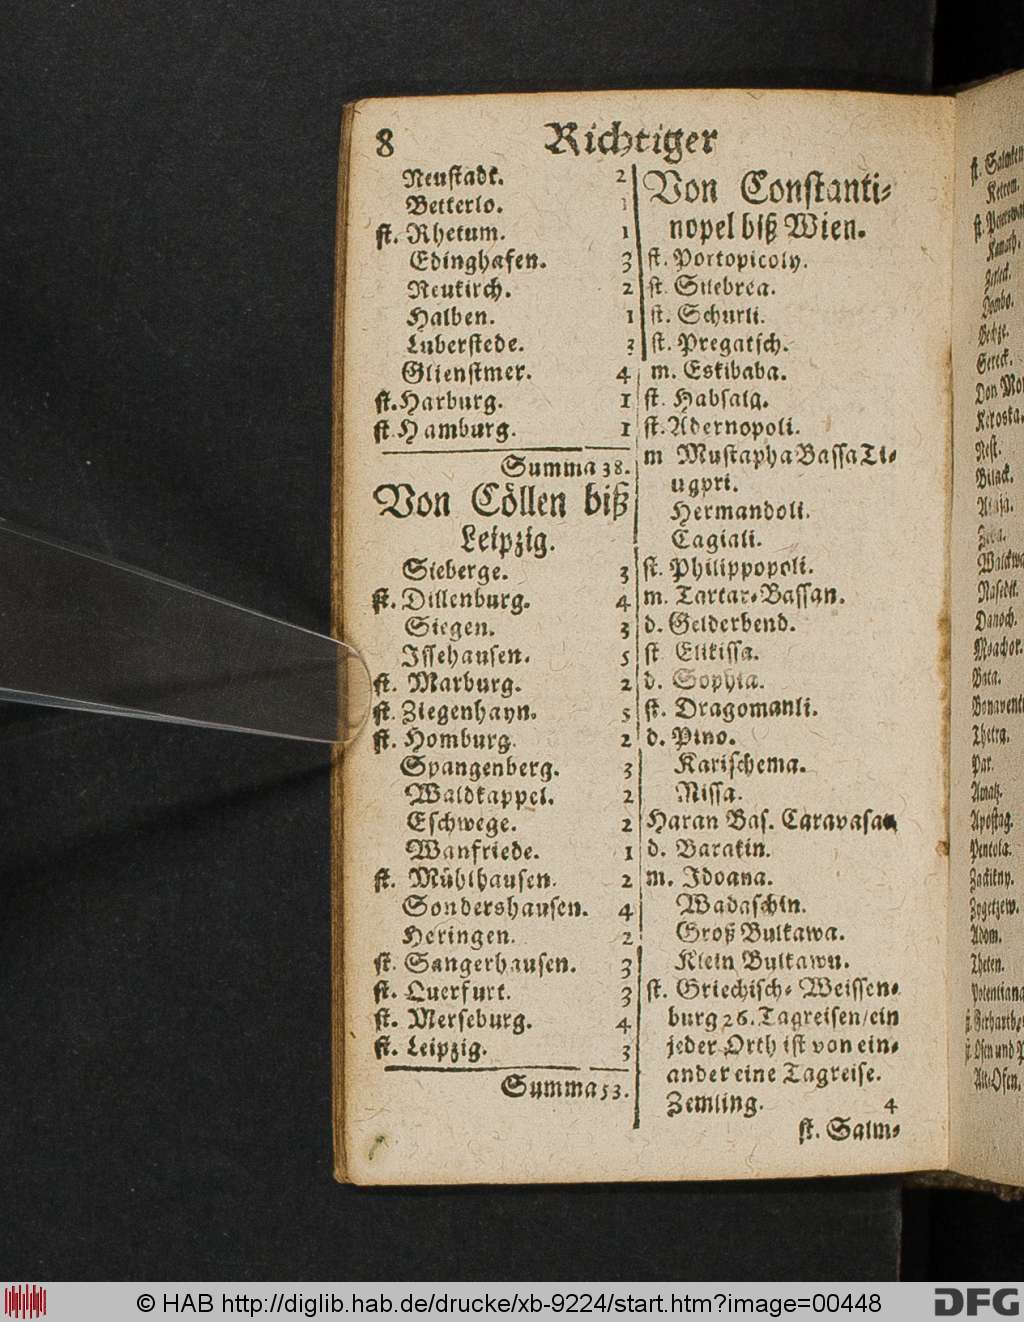 8 Richtiger
Neustadt. 2
Betterlo. 1
st. Rhetum. 1
Edinghafen. 3
Neukirch. 2
Halben. 1
Luberstede. 3
Glienstmer. 4
st. Harburg. 1
st. Hamburg. 1
Summa 38.
Von Cöllen biß
Leipzig.
Sieberge. 3
st. Dillenburg. 4
Siegen. 3
Issehausen. 5
st. Marburg. 2
st. Ziegenhayn. 5
st. Homburg. 2
Spangenberg. 3
Waldkappel. 2
Eschwege. 2
Wanfriede. 1
st. Mühlhausen. 2
Sondershausen. 4
Heringen. 2
st. Sangerhausen. 3
st. Querfurt. 3
st. Merseburg. 4
st. Leipzig. 3
Summa 53.
Von Constanti-
nopel biß Wien.
st. Portopicoly.
st. Silebrea.
st. Schurli.
st. Pregatsch.
m. Eskibaba.
st. Habsalg.
st. Adernopoli.
m Mustapha Bassa Ti-
ugpri.
Hermandoli.
Cagiali.
st. Philippopoli.
m. Tartar-Bassan.
d. Gelderbend.
st Elikissa.
d. Sophia.
st. Dragomanli.
d. Pino.
Karischema.
Nissa.
Haran Bas. Caravasan
d. Barakin.
m. Idoana.
Wadaschin.
Groß Bulkawa.
Klein Bulkawn.
st. Griechisch-Weissen-
burg 26. Tagreisen/ein
jeder Orth ist von ein-
ander eine Tagreise.
Zemling. 4
st. Salm-
st. Salmken
Ketten.
Dombo.
Sereck.
Keroska.
Nest.
Bilack.
Danoch.
Bata.
Par.
Apostag.
Pentola.
Adom.
Theten.
Alt-Ofen.
© HAB http://diglib.hab.de/drucke/xb-9224/start.htm?image=00448
DFG